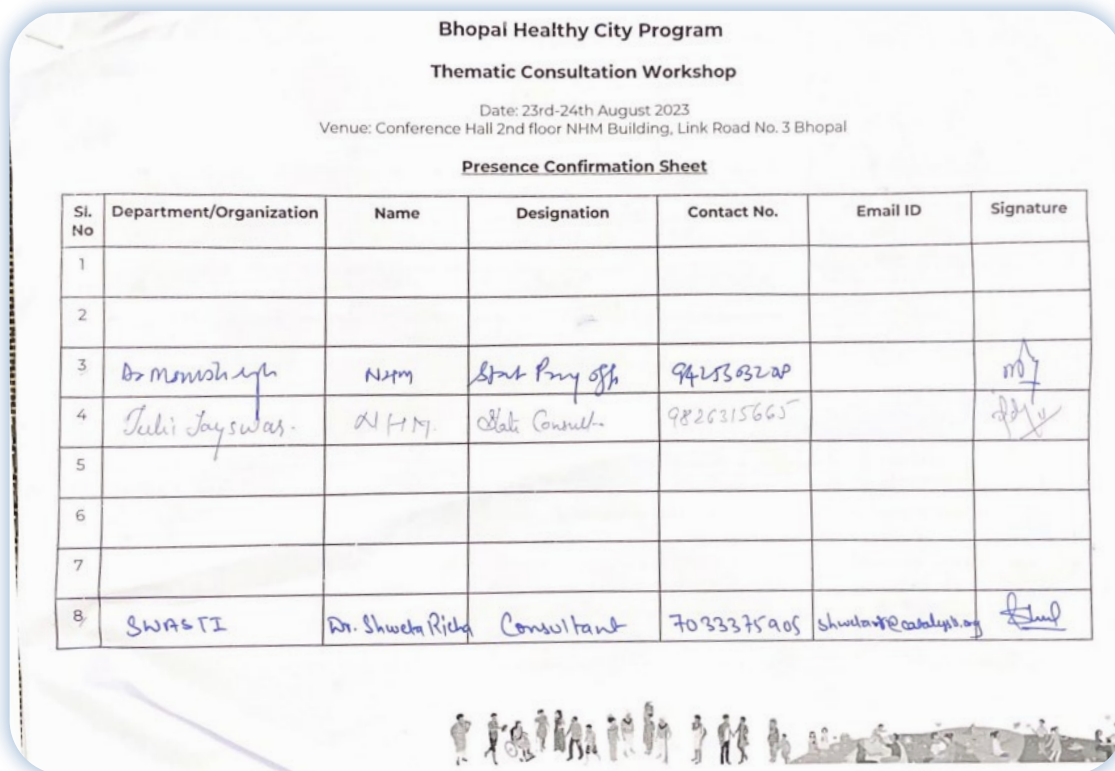 Bhopal Healthy City Program
Thematic Consultation Workshop
Date: 23rd-24th August 2023
Venue: Conference Hall 2nd floor NHM Building, Link Road No. 3 Bhopal
Presence Confirmation Sheet
Sl. No Department/Organization Name Designation Contact No. Email ID Signature
1
2
3 Dr NHM
4 NHM State Consult. 9826315665
5
6
7
8 SWASTI Dr. Shweta Consultant 7033375905